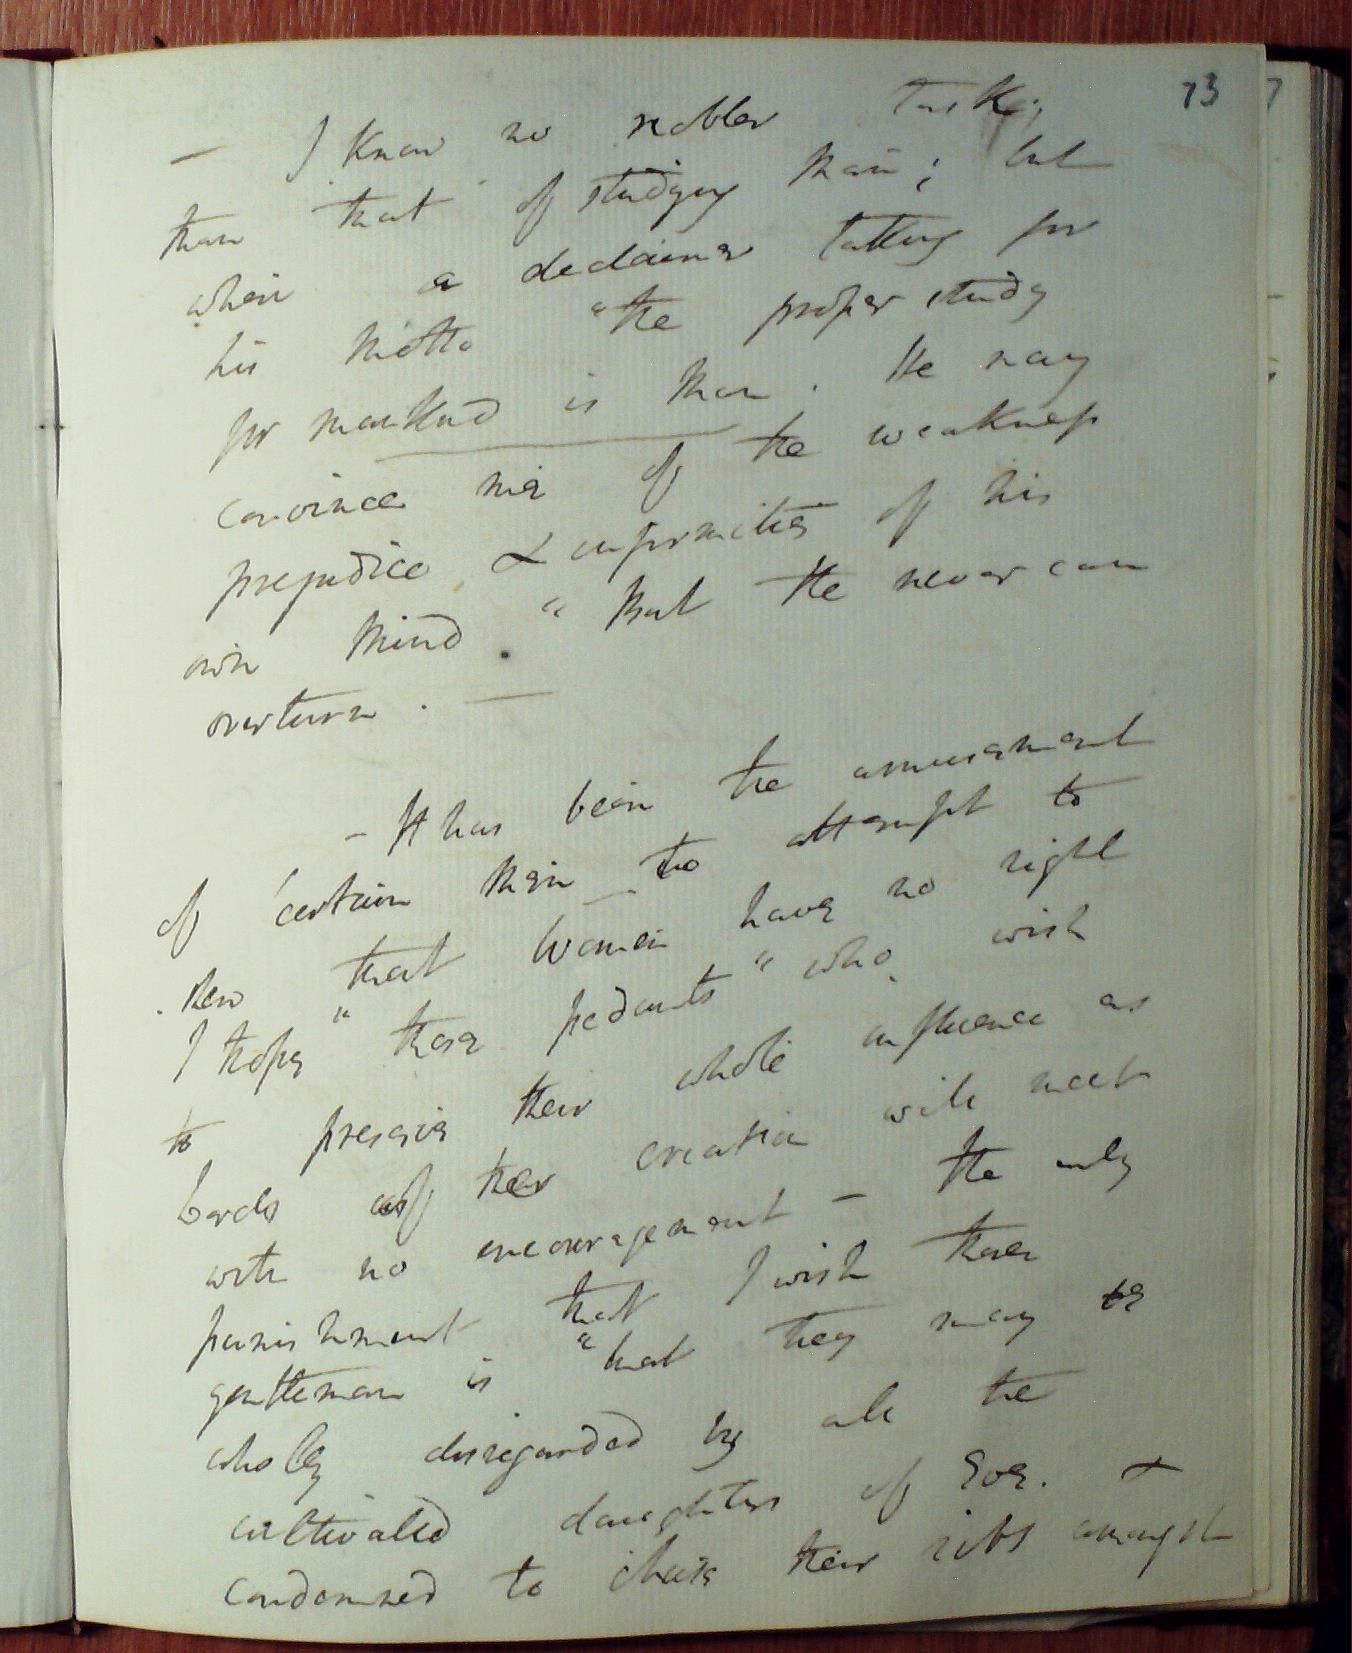 73
— I know no nobler task,
than that of studying Man; but
when a declaimer taking for
his Motto "the proper study
for mankind is Man. He may
convince me of the weakness
prejudice & infirmities of his
own Mind. " But He never can
overturn. —
— It has been the amusement
of certain Men to attempt to
shew that Women have no right
I hope " these pedants " who wish
to preserve their whole influence as
Lords of their creation will meet
with no encouragement — the only
punishment that I wish these
gentleman is "that they may be
wholly disregarded by all the
cultivated daughters of Eve. &
condemned to chuse their ribs amongst